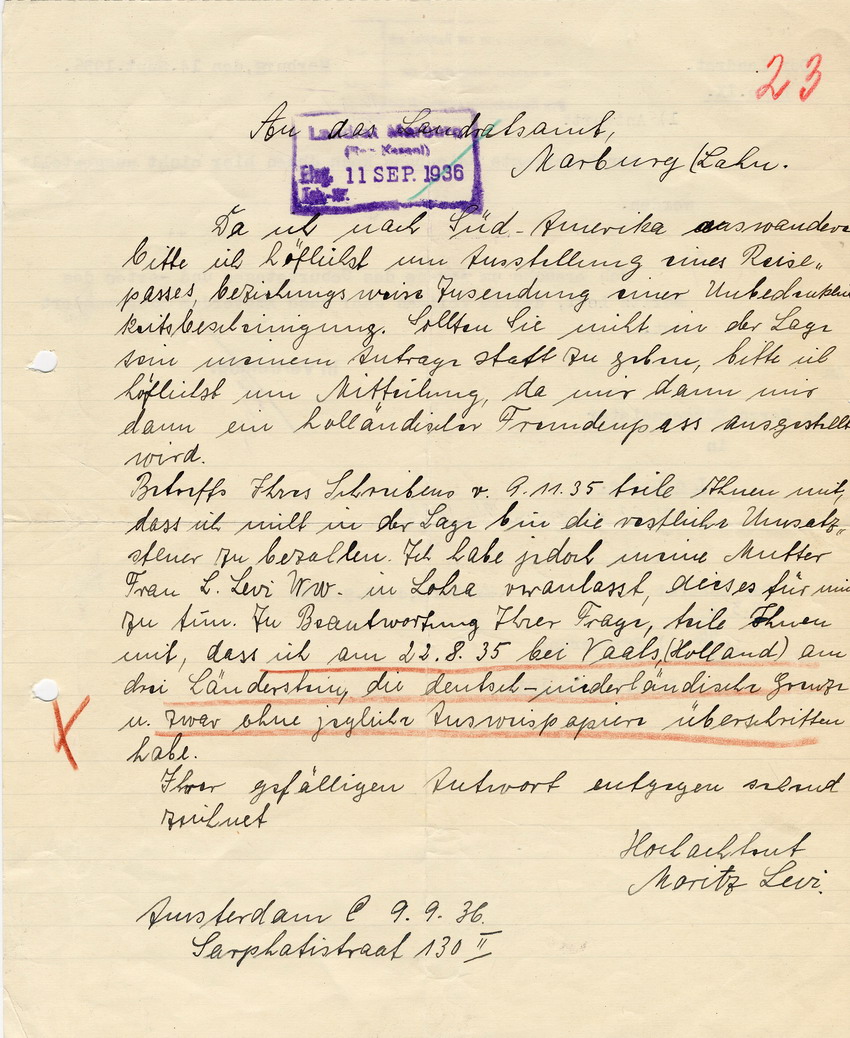 23
An das Landratsamt,
Landrat Marburg
(Bez. Kassel)
Marburg/Lahn.
Eing. 11 SEP. 1936
Tgb.-Nr.
Da ich nach Süd-Amerika auswandere
bitte ich höflichst um Ausstellung eines Reise„
passes, beziehungsweise Zusendung einer Unbedenklich
keitsbescheinigung. Sollten Sie nicht in der Lage
sein meinem Antrage statt zu geben, bitte ich
höflichst um Mitteilung, da mir dann mir
dann ein holländischer Fremdenpass ausgestellt
wird.
Betreffs Ihres Schreibens v. 9.11.35 teile Ihnen mit,
dass ich nicht in der Lage bin die restliche Umsatz„
steuer zu bezahlen. Ich habe jedoch meine Mutter
Frau L. Levi Ww. in Lohra veranlasst, dieses für mich
zu tun. Zu Beantwortung Ihrer Frage, teile Ihnen
mit, dass ich am 22.8.35 bei Vaals, (Holland) am
drei Länderstein, die deutsch-niederländische Grenze
u. zwar ohne jegliche Ausweispapiere überschritten
habe.
Ihrer gefälligen Antwort entgegen sehend
zeichnet
Hochachtent
Moritz Levi.
Amsterdam C 9.9.36.
Sarphatistraat 130 II